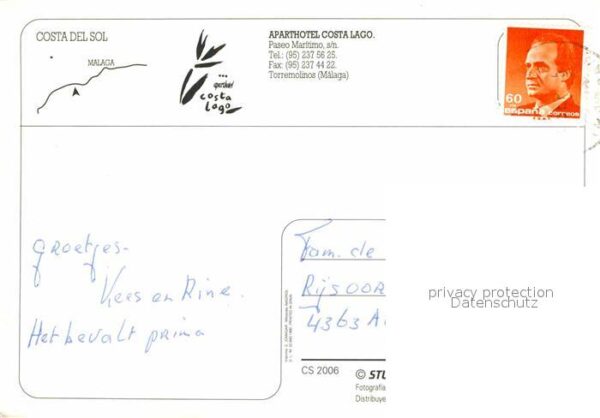 COSTA DEL SOL
MALAGA
aparthotel
costa
lago
APARTHOTEL COSTA LAGO.
Paseo Marítimo, s/n.
Tel.: (95) 237 56 25.
Fax: (95) 237 44 22.
Torremolinos (Málaga)
60
España correos
groetjes-
Kees en Rine.
Het bevalt prima
Fam. de
Rijsoor
4363 A
privacy protection
Datenschutz
CS 2006
© STU
Fotografía
Distribuye